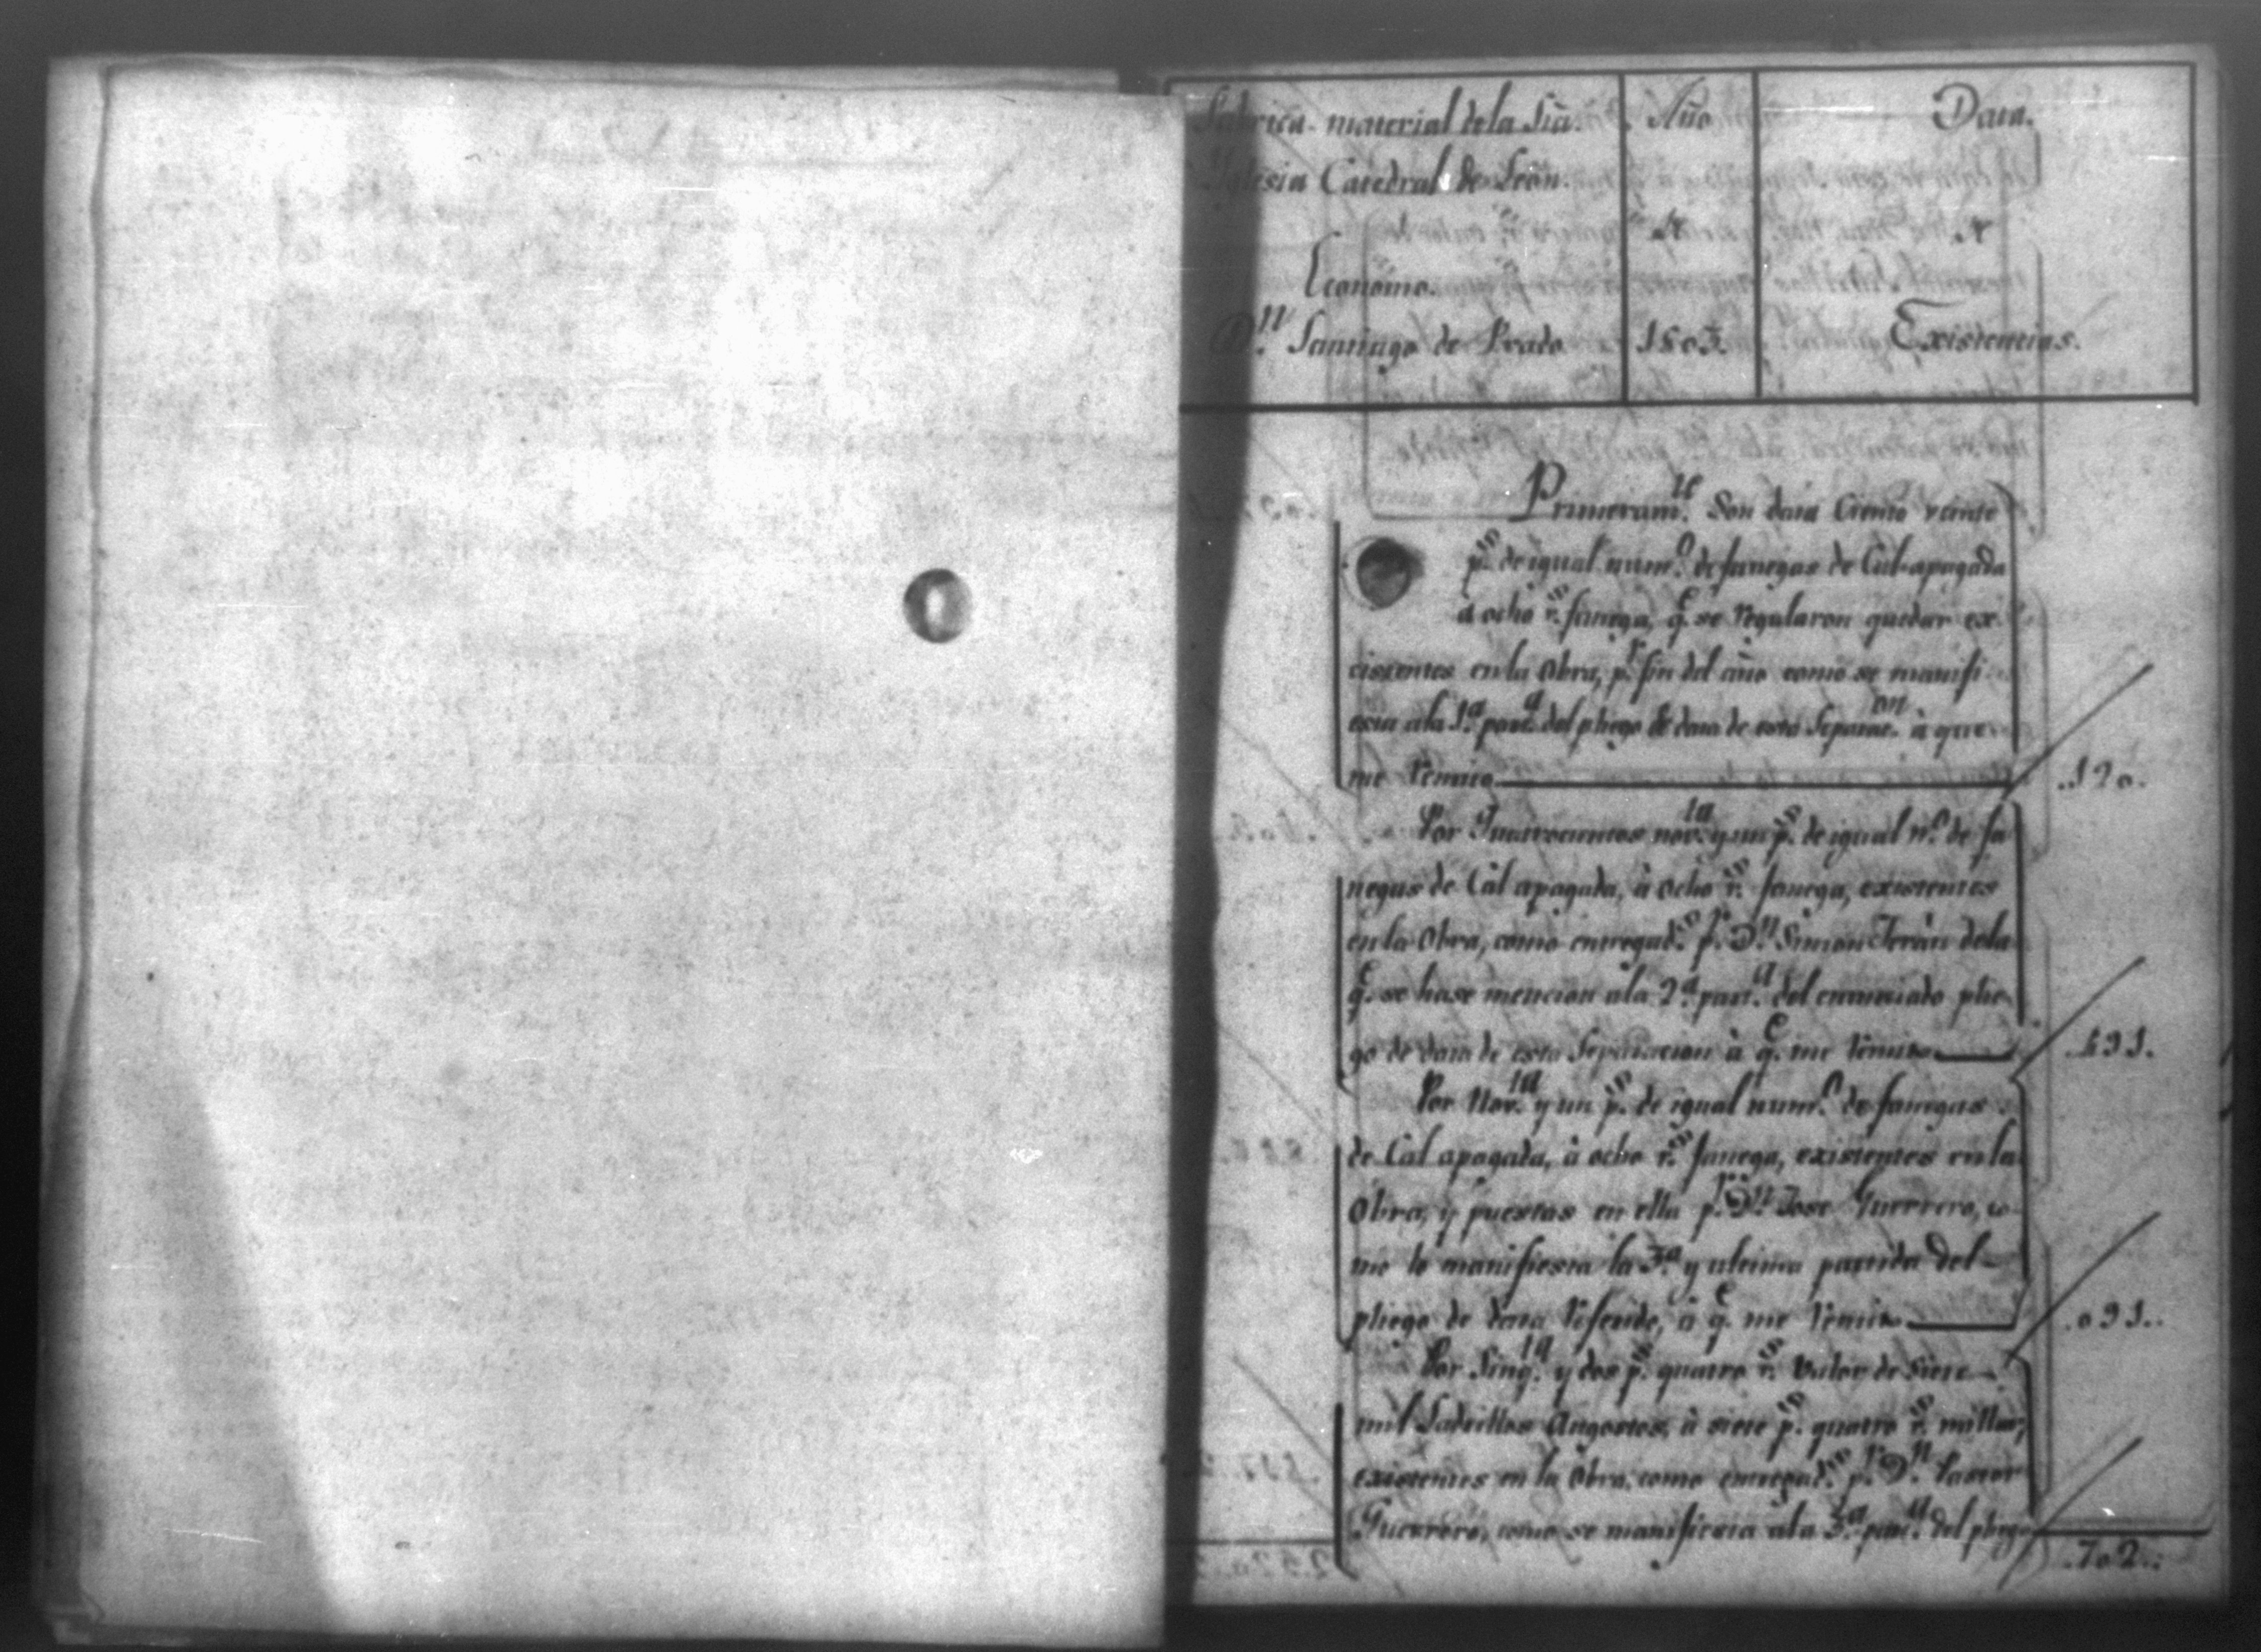 Fabrica material dela Sta.
Yglesia Catedral de Leon.
Economo.
Dn. Santiago de Prado
Año
1803.
Data.
Existencias.
Primeramte. Son data Ciento veinte
ps. de igual numo. de fanegas de Cal apagada
à ocho rs. fanega, qe. se regularon quedar ex
cistentes en la Obra, pr. fin del año como se manifi
esta ala 1.a parta. del pliego de data de esta Separaon. à que
me remito
.120.
Por Quatrocientos novta. y un ps. de igual no. de fa
negas de Cal apagada, à ocho rs. fanega, existentes
en la Obra, como entregads. pr. Dn. Simon Teràn dela
qe. se hase mencion ala 2.a parta. del enunciado plie
go de data de esta Separacion à qe. me remito
.491.
Por Novta. y un ps. de igual numo. de fanegas
de Cal apagada, à ocho rs. fanega, existentes en la
Obra, y puestas en ella pr. Dn. Jose Guerrero, co
mo lo manifiesta la 3.a y ultima partida del
pliego de data referido, à qe. me remito
.091.
Por Sinqta. y dos ps. quatro rs. valor de siete
mil Ladrillos Angostos, à siete ps. quatro rs. millar,
existentes en la Obra, como entregads. pr. Dn. Pastor
Guerrero, como se manifiesta ala 3.a parta. del pliego
.702.